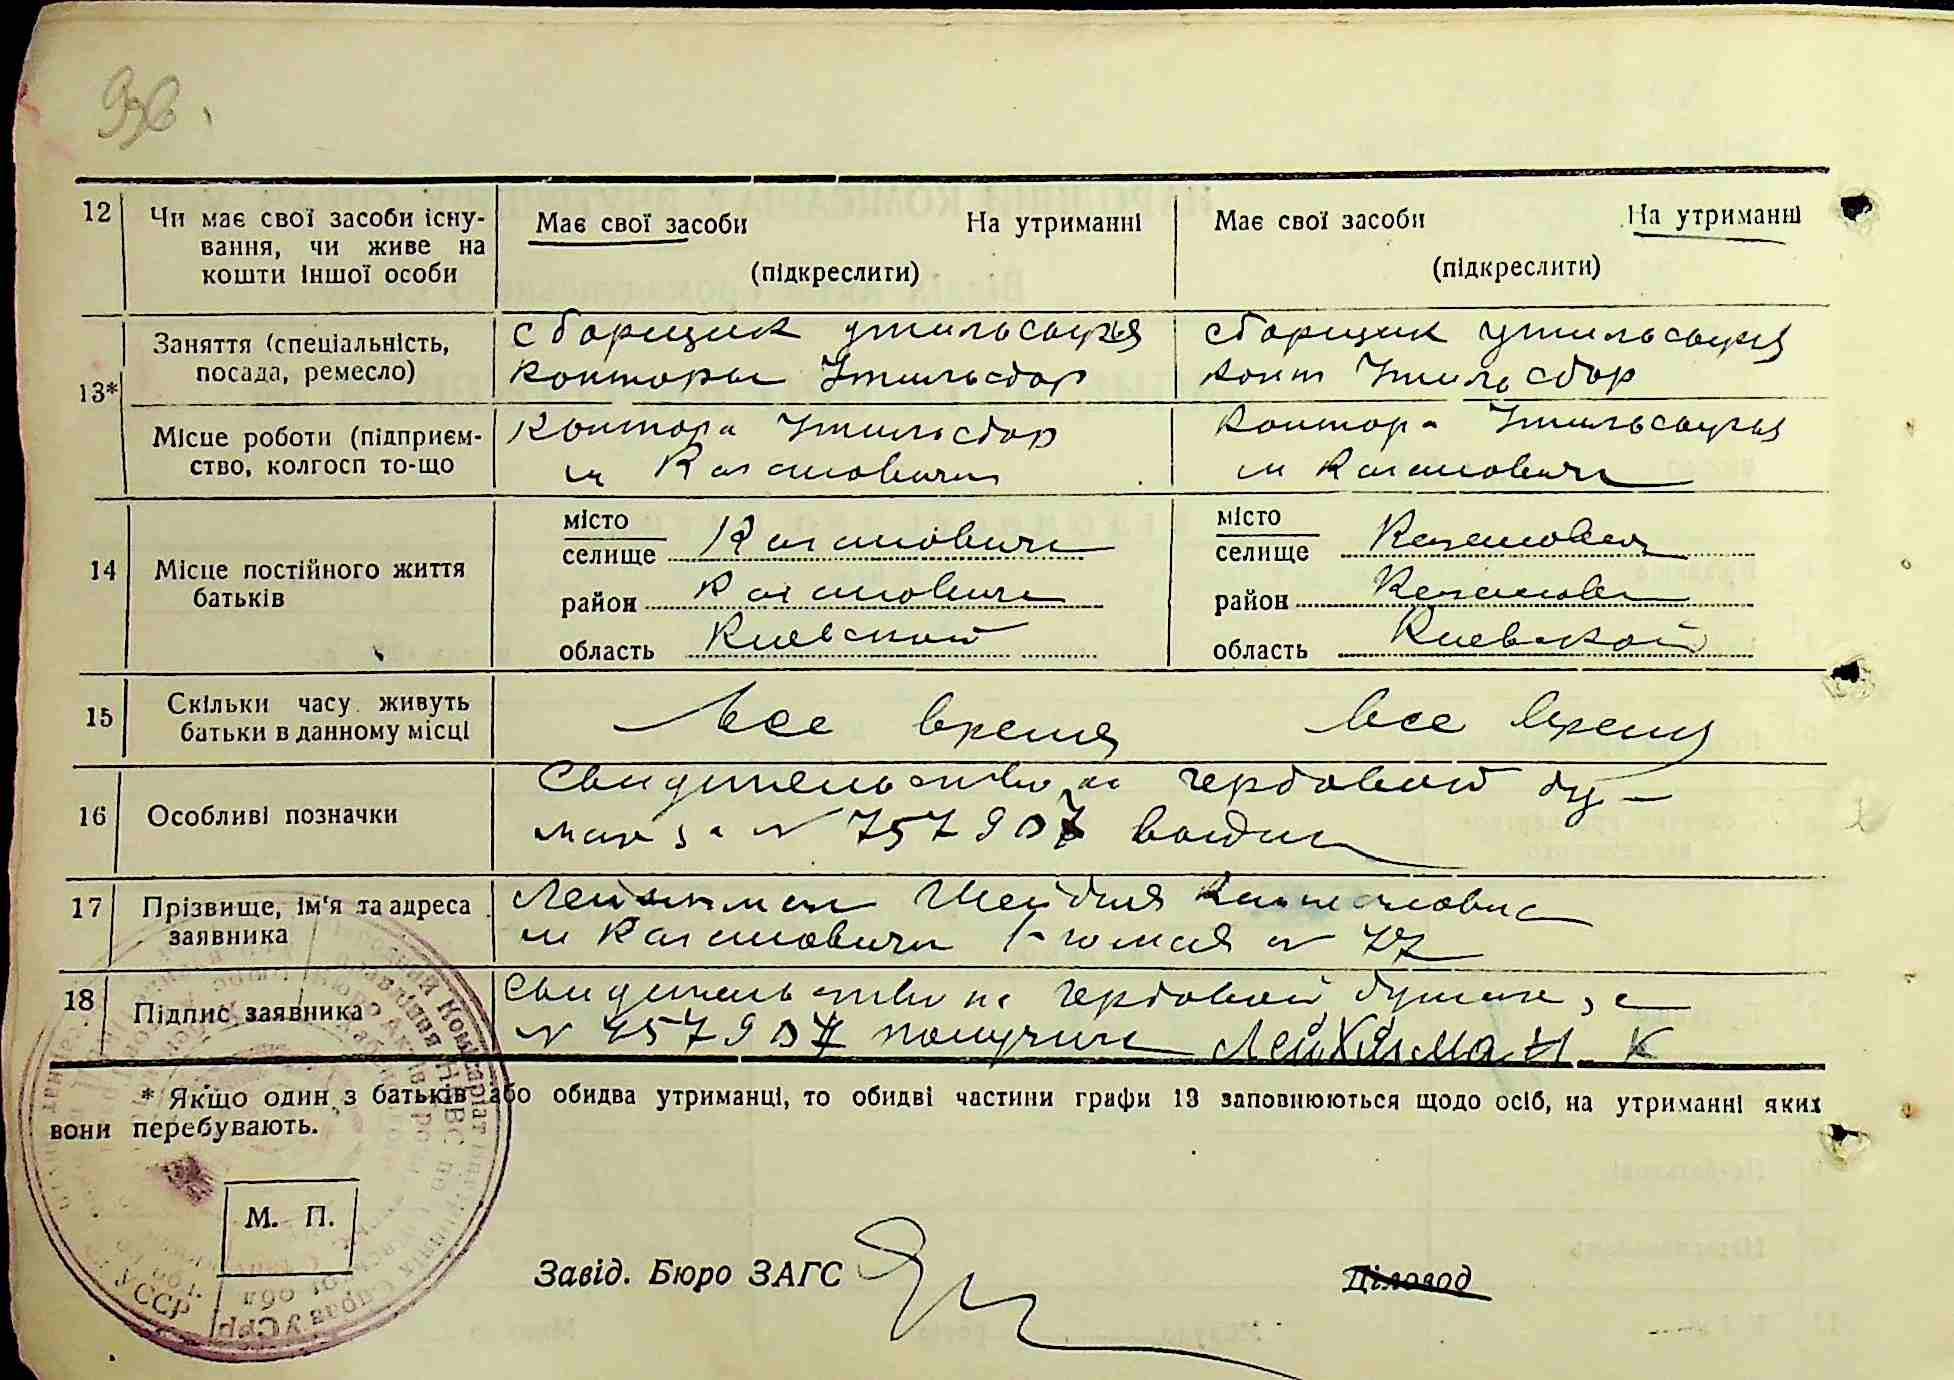 12 Чи має свої засоби існу-
вання, чи живе на
кошти іншої особи
Має свої засоби На утриманні
(підкреслити)
Має свої засоби На утриманні
(підкреслити)
13*
Заняття (спеціальність,
посада, ремесло)
сборщик утильсырья
Конторы Утильсбор
сборщик утильсырья
конт Утильсбор
Місце роботи (підприєм-
ство, колгосп то-що
Контора Утильсбор
м Каганович
Контора Утильсырья
м Каганович
14 Місце постійного життя
батьків
місто
селище Каганович
район Каганович
область Киевской
місто
селище Каганович
район Каганович
область Киевской
15 Скільки часу живуть
батьки в данному місці
Все время
Все время
16 Особливі позначки
Свидетельство на гербовой бу-
маге за №
17 Прізвище, ім'я та адреса
заявника
м Каганович 1-го мая № 77
18 Підпис заявника
Свидетельство на гербовой бумаге за
№ получил Лейхтман К
* Якщо один з батьків або обидва утриманці, то обидві частини графи 13 заповнюються щодо осіб, на утриманні яких
вони перебувають.
М. П.
Завід. Бюро ЗАГС
Діловод